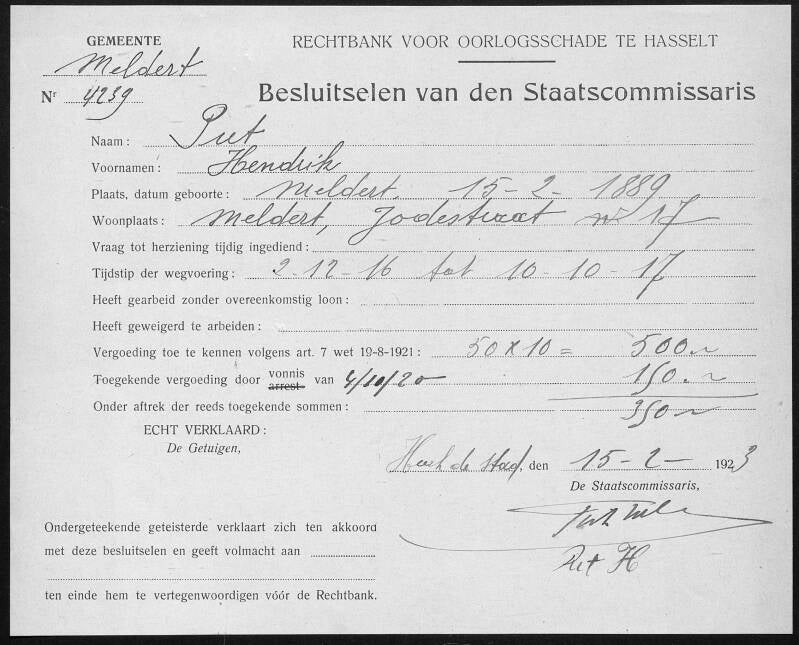 GEMEENTE
Meldert
Nr 4239
RECHTBANK VOOR OORLOGSSCHADE TE HASSELT
Besluitselen van den Staatscommissaris
Naam : Put
Voornamen : Hendrik
Plaats, datum geboorte : Meldert. 15-2-1889
Woonplaats : Meldert, Jodestraat nr 17
Vraag tot herziening tijdig ingediend :
Tijdstip der wegvoering : 2-12-16 tot 10-10-17
Heeft gearbeid zonder overeenkomstig loon :
Heeft geweigerd te arbeiden :
Vergoeding toe te kennen volgens art. 7 wet 19-8-1921 : 50 x 10 = 500.-
Toegekende vergoeding door vonnis arrest van 4/10/20 150.-
Onder aftrek der reeds toegekende sommen : 350.-
ECHT VERKLAARD :
De Getuigen,
Herk de Stad, den 15-2-1923
De Staatscommissaris,
Put H
Ondergeteekende geteisterde verklaart zich ten akkoord
met deze besluitselen en geeft volmacht aan
ten einde hem te vertegenwoordigen vóór de Rechtbank.